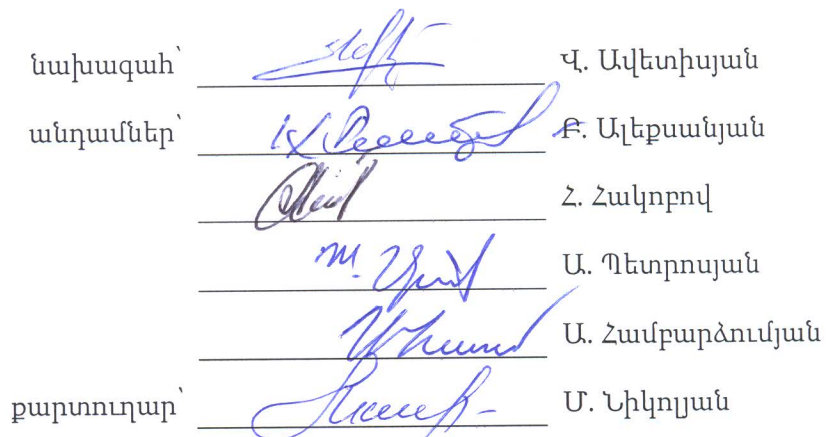 նախագահ՝ Վ. Ավետիսյան
անդամներ՝ Բ. Ալեքսանյան
Հ. Հակոբով
Ա. Պետրոսյան
Ա. Համբարձումյան
քարտուղար՝ Մ. Նիկոլյան